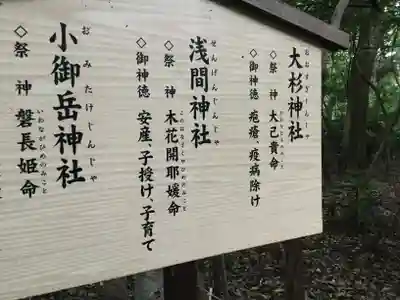 おおすぎじんじゃ
大杉神社
◇祭神 大己貴命
◇御神徳 疱瘡、疫病除け
せんげんじんじゃ
浅間神社
◇祭神 木花開耶媛命
このはなさくやひめのみこと
◇御神徳 安産、子授け、子育て
おみたけじんじゃ
小御岳神社
◇祭神 磐長姫命
いわながひめのみこと